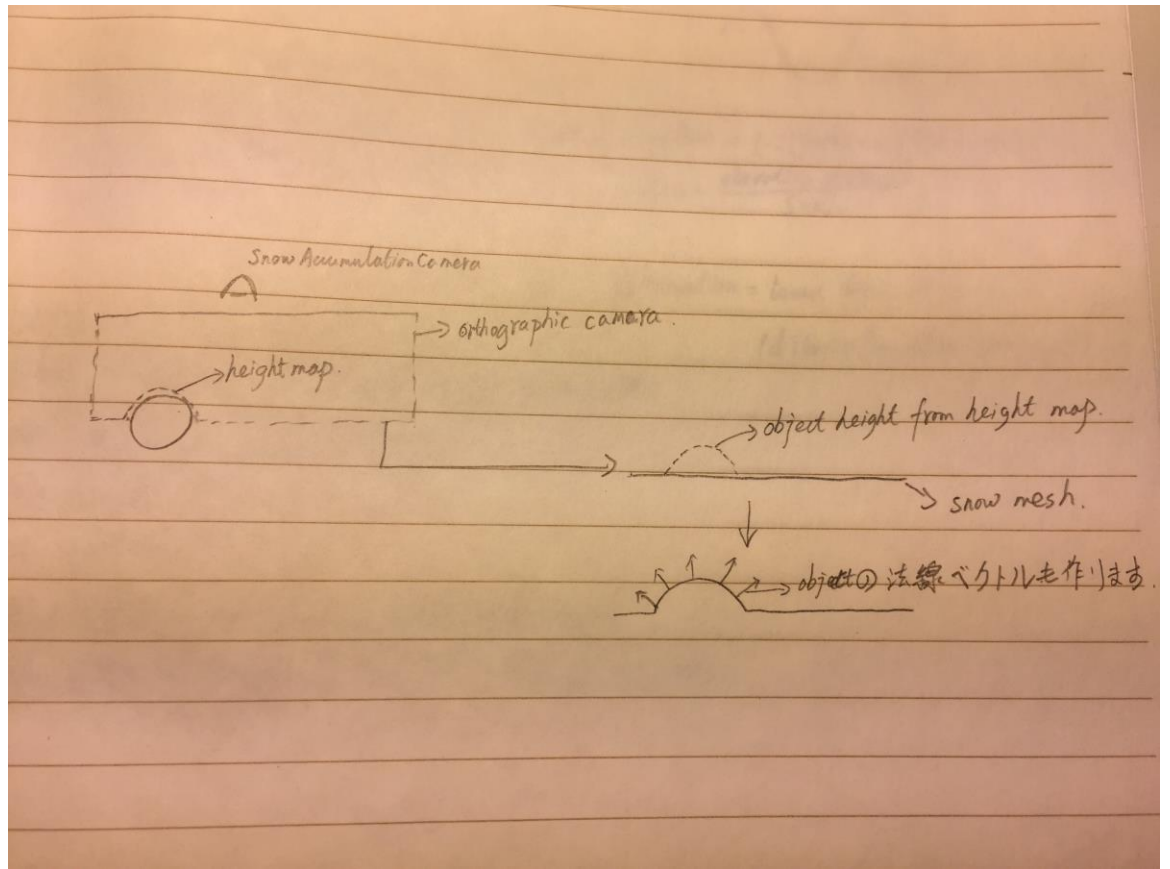 Snow Accumulation Camera
orthographic camera.
height map.
object height from height map.
snow mesh.
objectの法線ベクトルも作ります.